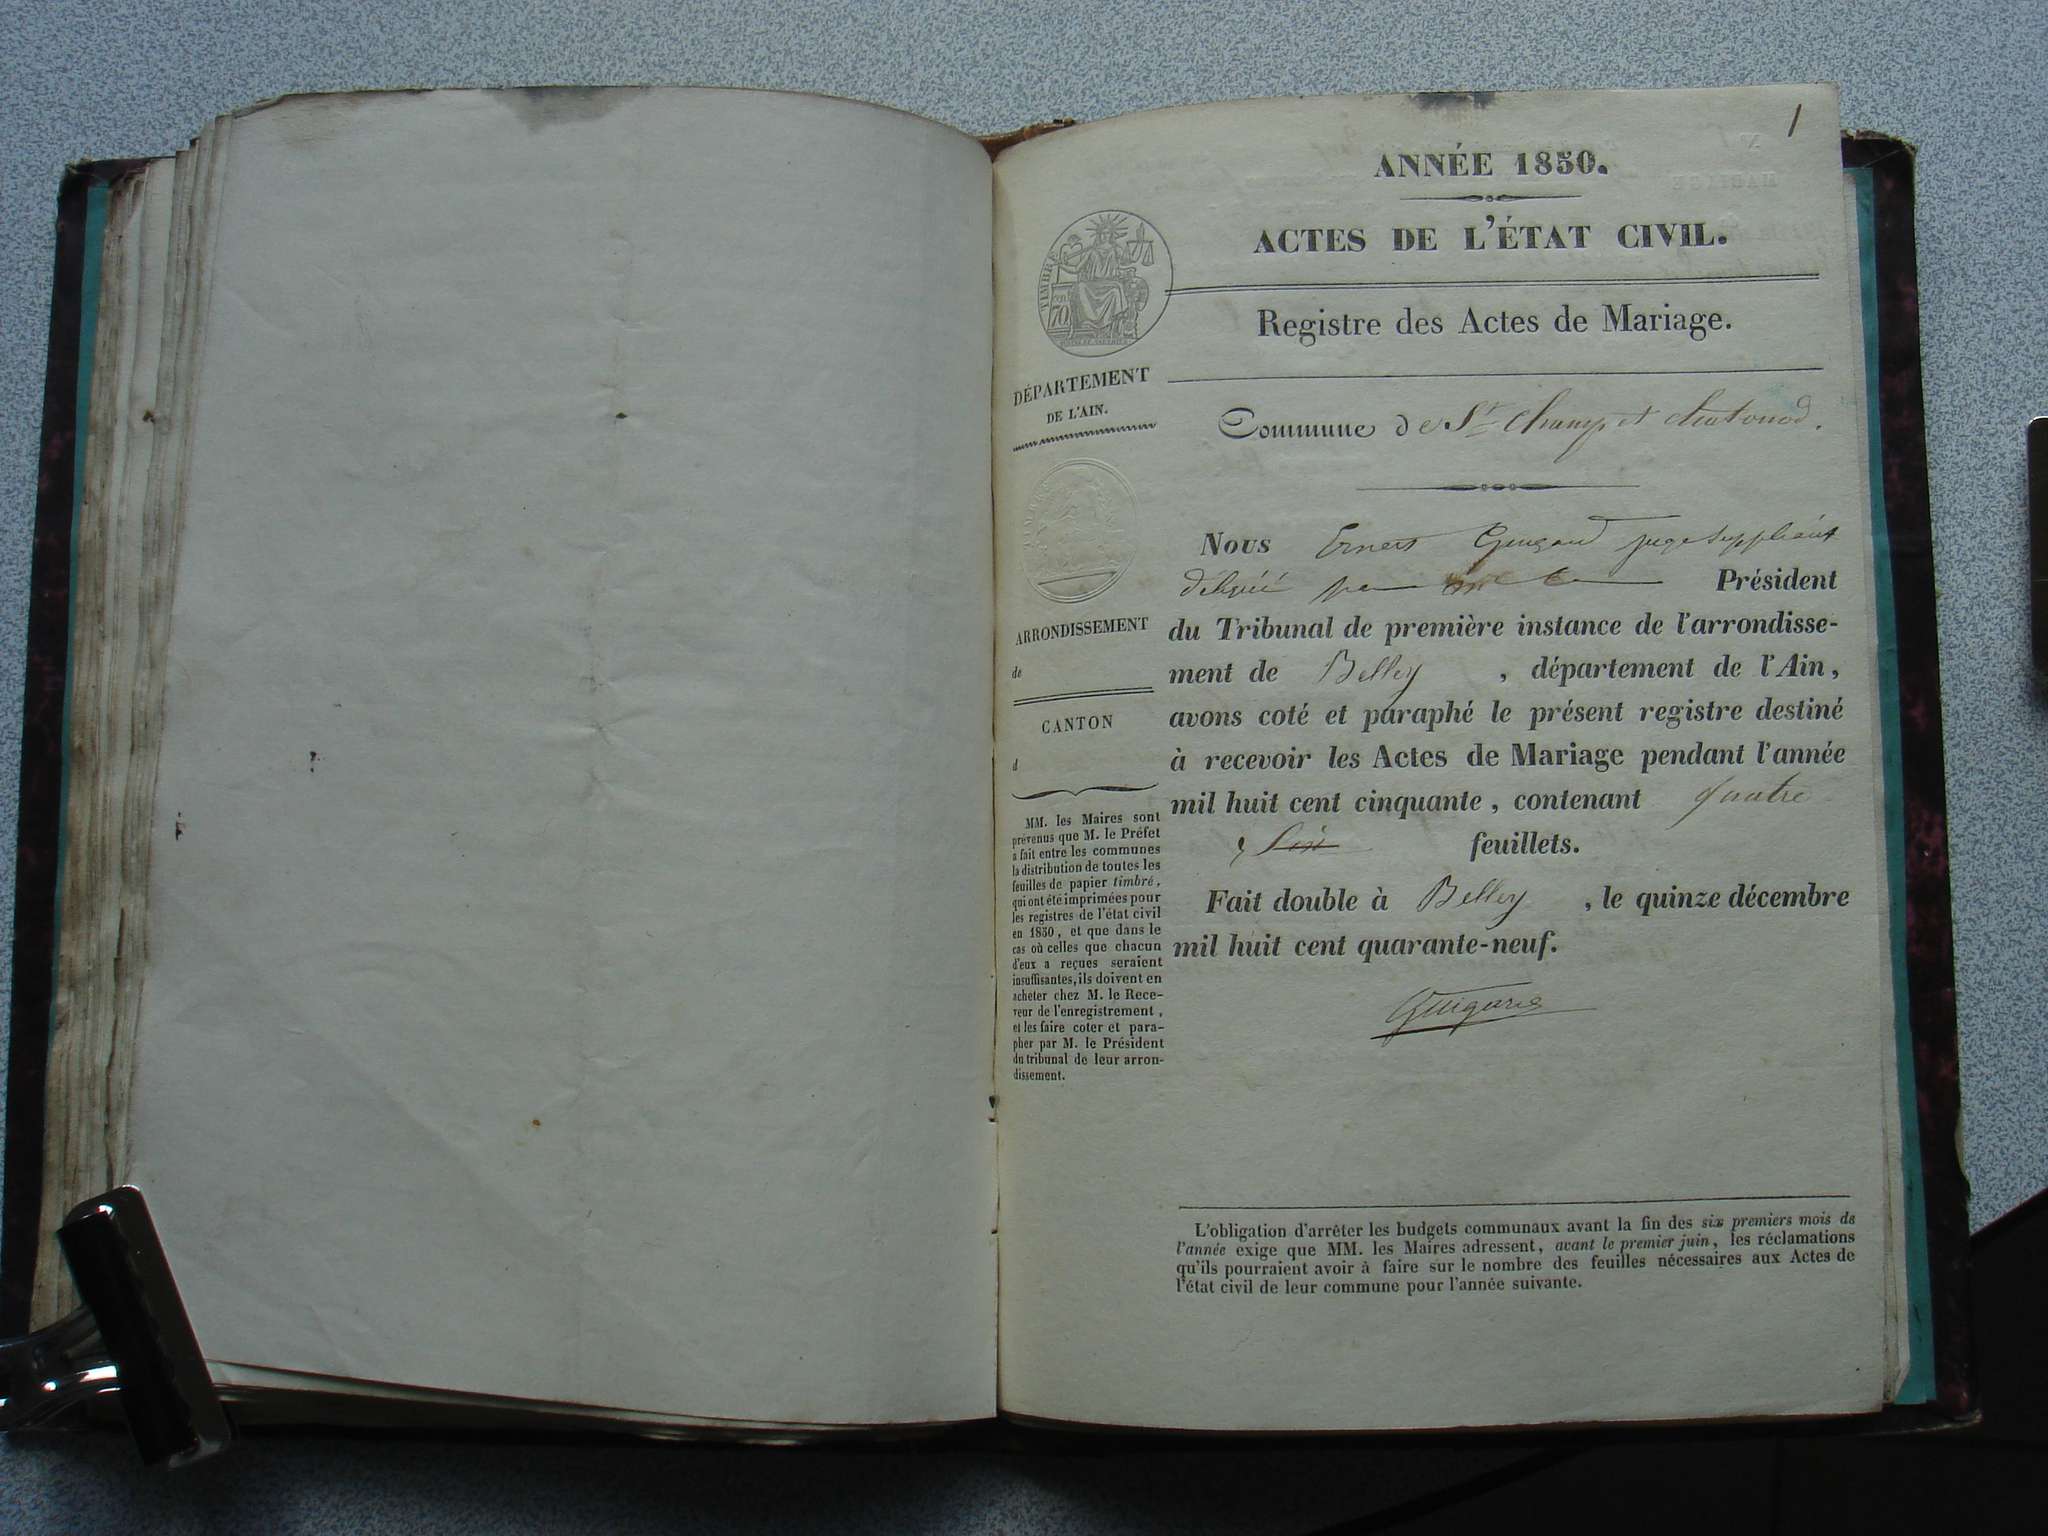 1
ANNÉE 1850.
ACTES DE L'ÉTAT CIVIL.
Registre des Actes de Mariage.
TIMBRE
70
DÉPARTEMENT
DE L'AIN.
Commune de St Champ et Chatonod.
Nous Ernest juge suppléant
délégué par Mr le Président
du Tribunal de première instance de l'arrondisse-
ment de Belley, département de l'Ain,
avons coté et paraphé le présent registre destiné
à recevoir les Actes de Mariage pendant l'année
mil huit cent cinquante, contenant quatre
feuillets.
Fait double à Belley, le quinze décembre
mil huit cent quarante-neuf.
ARRONDISSEMENT
de
CANTON
d
MM. les Maires sont
prévenus que M. le Préfet
a fait entre les communes
la distribution de toutes les
feuilles de papier timbré,
qui ont été imprimées pour
les registres de l'état civil
en 1850, et que dans le
cas où celles que chacun
d'eux a reçues seraient
insuffisantes, ils doivent en
acheter chez M. le Rece-
veur de l'enregistrement,
et les faire coter et para-
pher par M. le Président
du tribunal de leur arron-
dissement.
L'obligation d'arrêter les budgets communaux avant la fin des six premiers mois de
l'année exige que MM. les Maires adressent, avant le premier juin, les réclamations
qu'ils pourraient avoir à faire sur le nombre des feuilles nécessaires aux Actes de
l'état civil de leur commune pour l'année suivante.